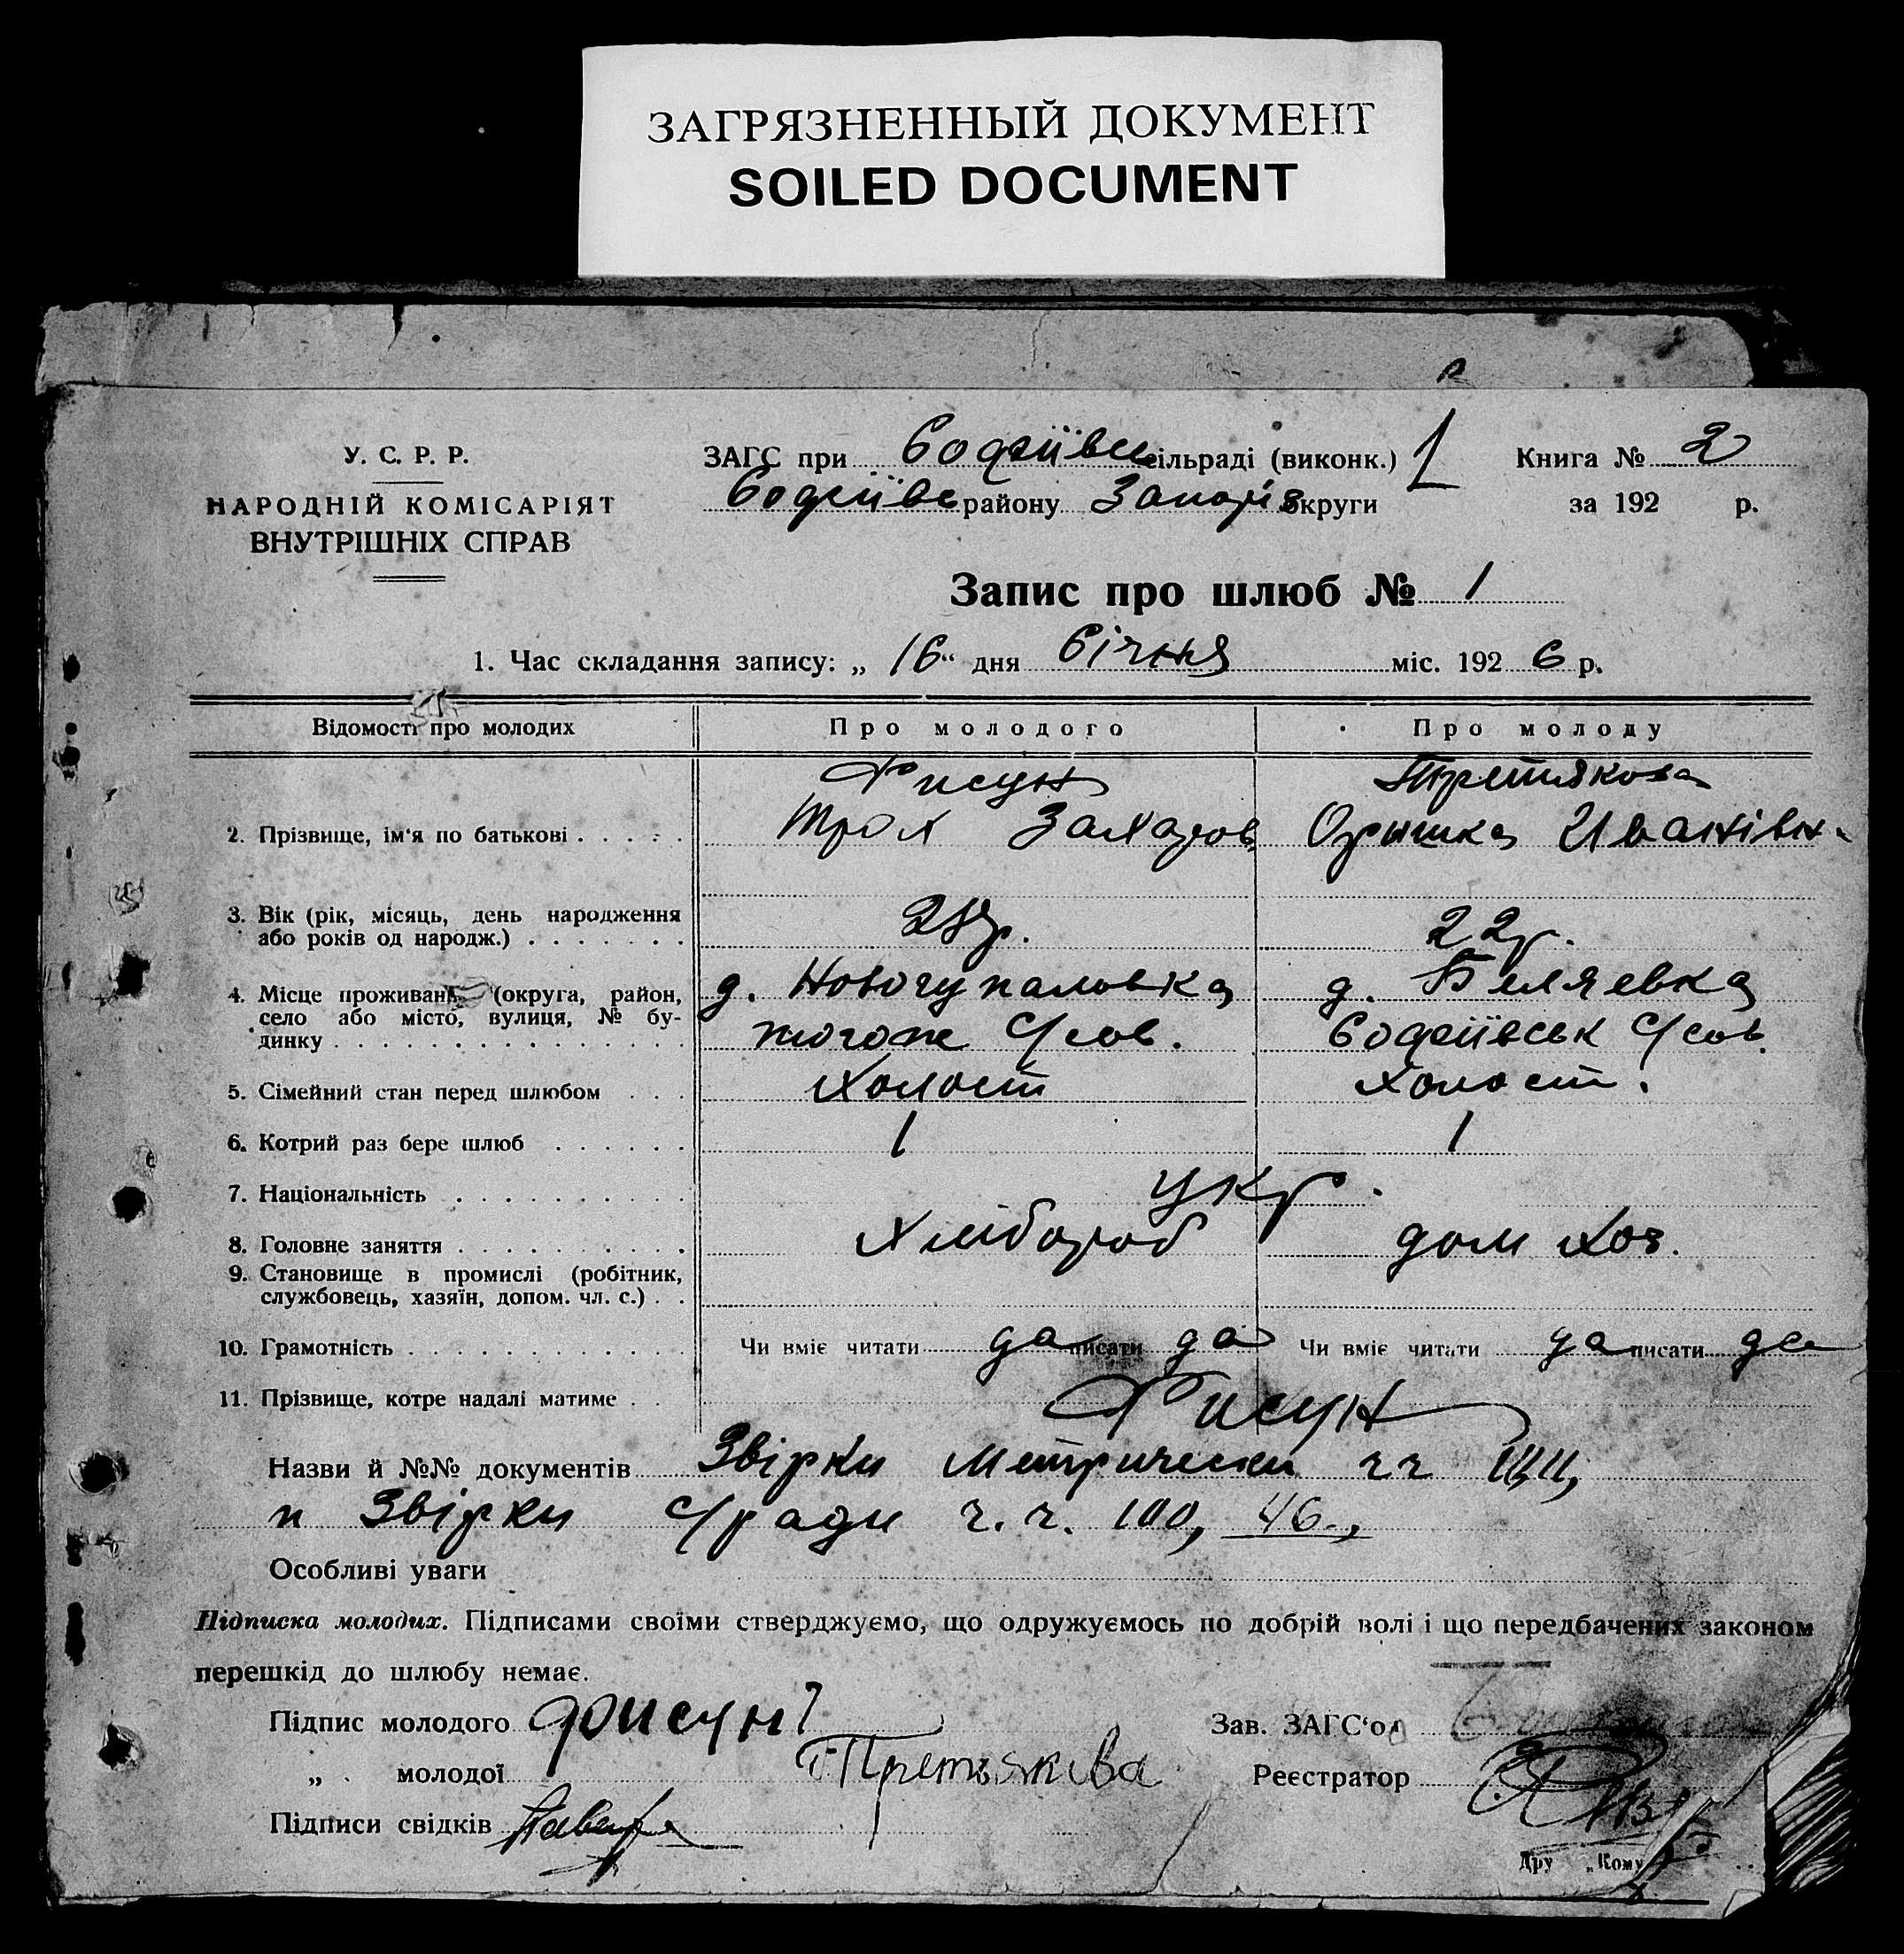 ЗАГРЯЗНЕННЫЙ ДОКУМЕНТ
SOILED DOCUMENT
У. С. Р. Р.
НАРОДНІЙ КОМІСАРІЯТ
ВНУТРІШНІХ СПРАВ
ЗАГС при Софіївск сільраді (виконк.) 1
Софіївс району Запоріз округи
Книга № 2
за 192 р.
Запис про шлюб № 1
1. Час складання запису: „ 16 “ дня Січня міс. 192 6 р.
Відомості про молодих
Про молодого
Про молоду
2. Прізвище, ім'я по батькові
Фисун
Трох Захаров.
Третякова
Орышка Иванівн.
3. Вік (рік, місяць, день народження
або років од народж.)
р.
22 р.
4. Місце проживання (округа, район,
село або місто, вулиця, № бу-
динку
д. Новогупаловка
тогоже С/сов.
д. Беляевка
Софіївськ С/сов.
5. Сімейний стан перед шлюбом
Холост
Холост.
6. Котрий раз бере шлюб
1
1
7. Національність
укр.
8. Головне заняття
Хлібороб
дом хоз.
9. Становище в промислі (робітник,
службовець, хазяїн, допом. чл. с.)
10. Грамотність
Чи вміє читати да писати да
Чи вміє читати да писати да
11. Прізвище, котре надалі матиме
Фисун
Назви й №№ документів Звірки Метрически ч ч
и Звірки С/ради ч. ч. 100, 46.,
Особливі уваги
Підписка молодих. Підписами своїми стверджуємо, що одружуємось по добрій волі і що передбачених законом
перешкід до шлюбу немає.
Підпис молодого Фисун Т
„ молодої Третьякова
Підписи свідків
Зав. ЗАГС'ом
Реєстратор
Дру „Кому